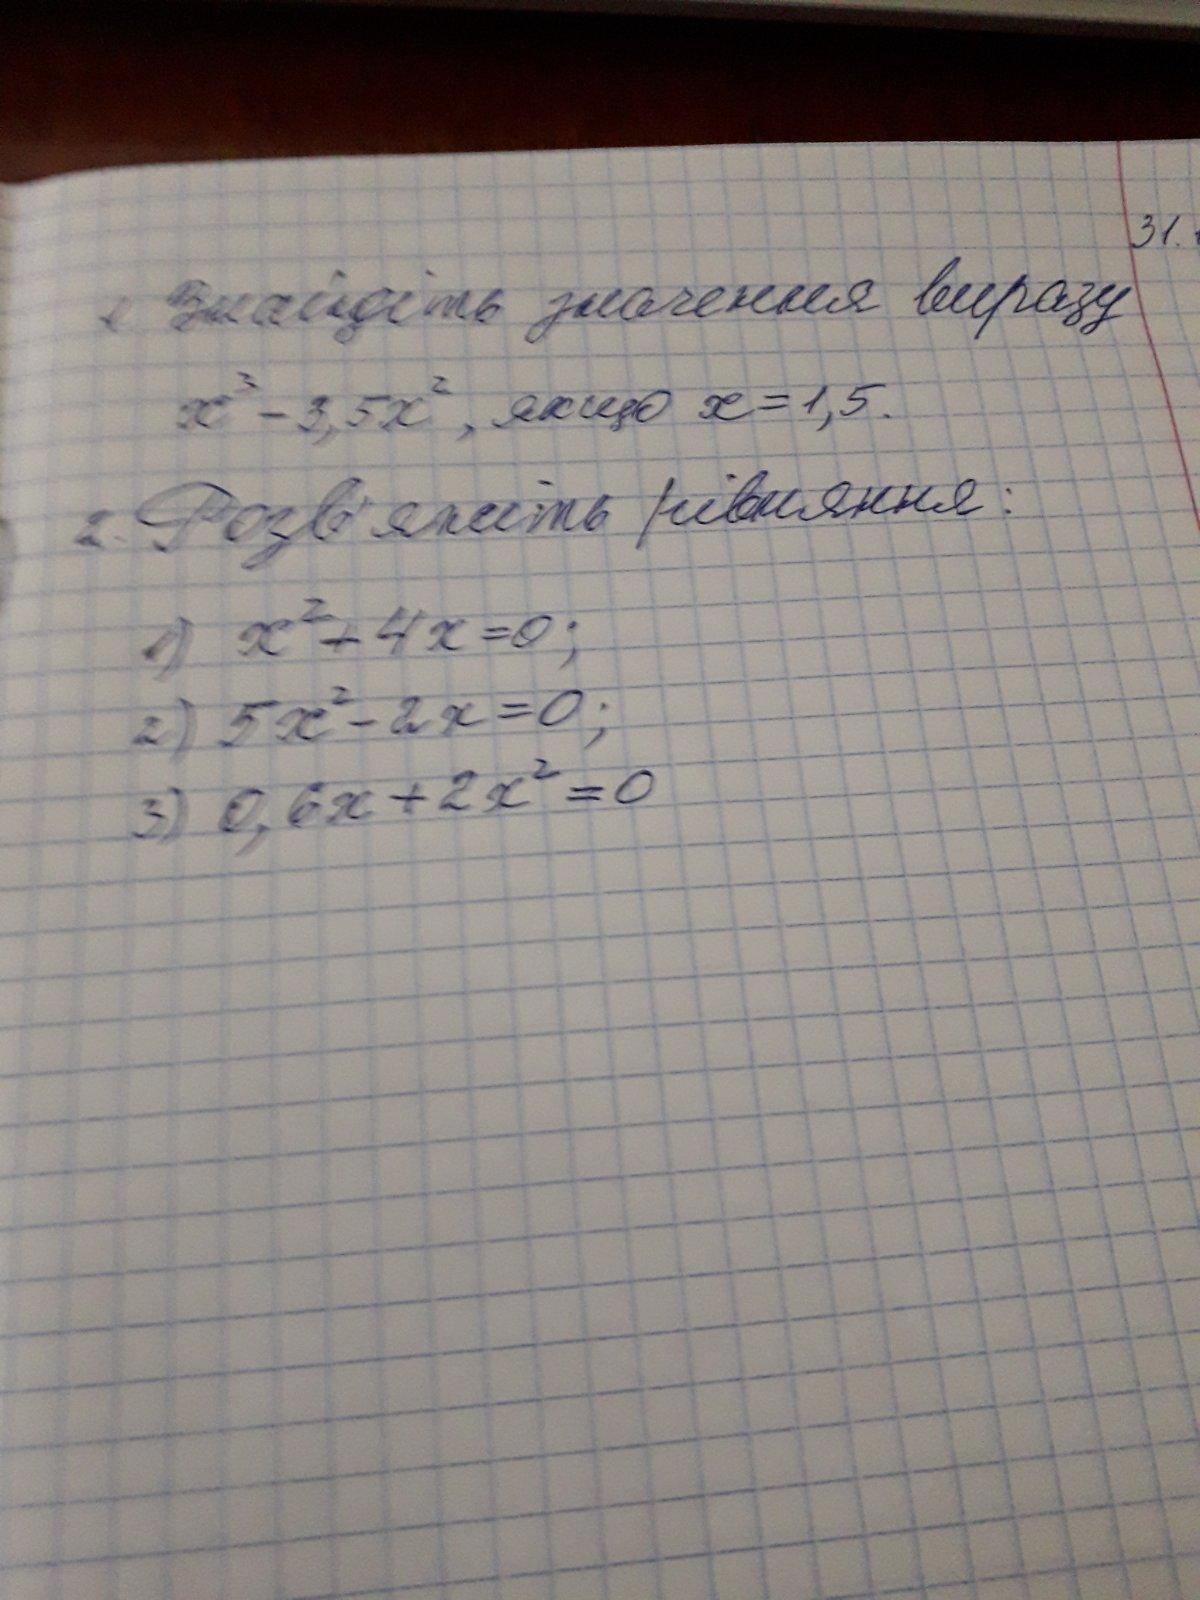 31.
1 Знайдіть значення виразу
x³ - 3,5x², якщо x = 1,5.
2. Розв'яжіть рівняння:
1) x² + 4x = 0;
2) 5x² - 2x = 0;
3) 0,6x + 2x² = 0